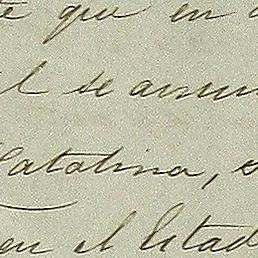 que en
se
Catalina,
en el Estad